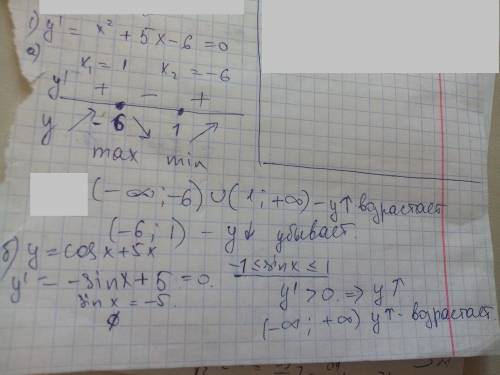 1) y' = x² + 5x - 6 = 0
а)
x₁ = 1 x₂ = -6
y' + - +
y ↗ -6 ↘ 1 ↗
max min
(-∞; -6) ∪ (1; +∞) - y↑ возрастает
(-6; 1) - y↓ убывает
б) y = cosx + 5x
y' = -sinx + 5 = 0.
sinx = -5.
∅
-1 ≤ sinx ≤ 1
y' > 0. => y↑
(-∞; +∞) y↑ - возрастает